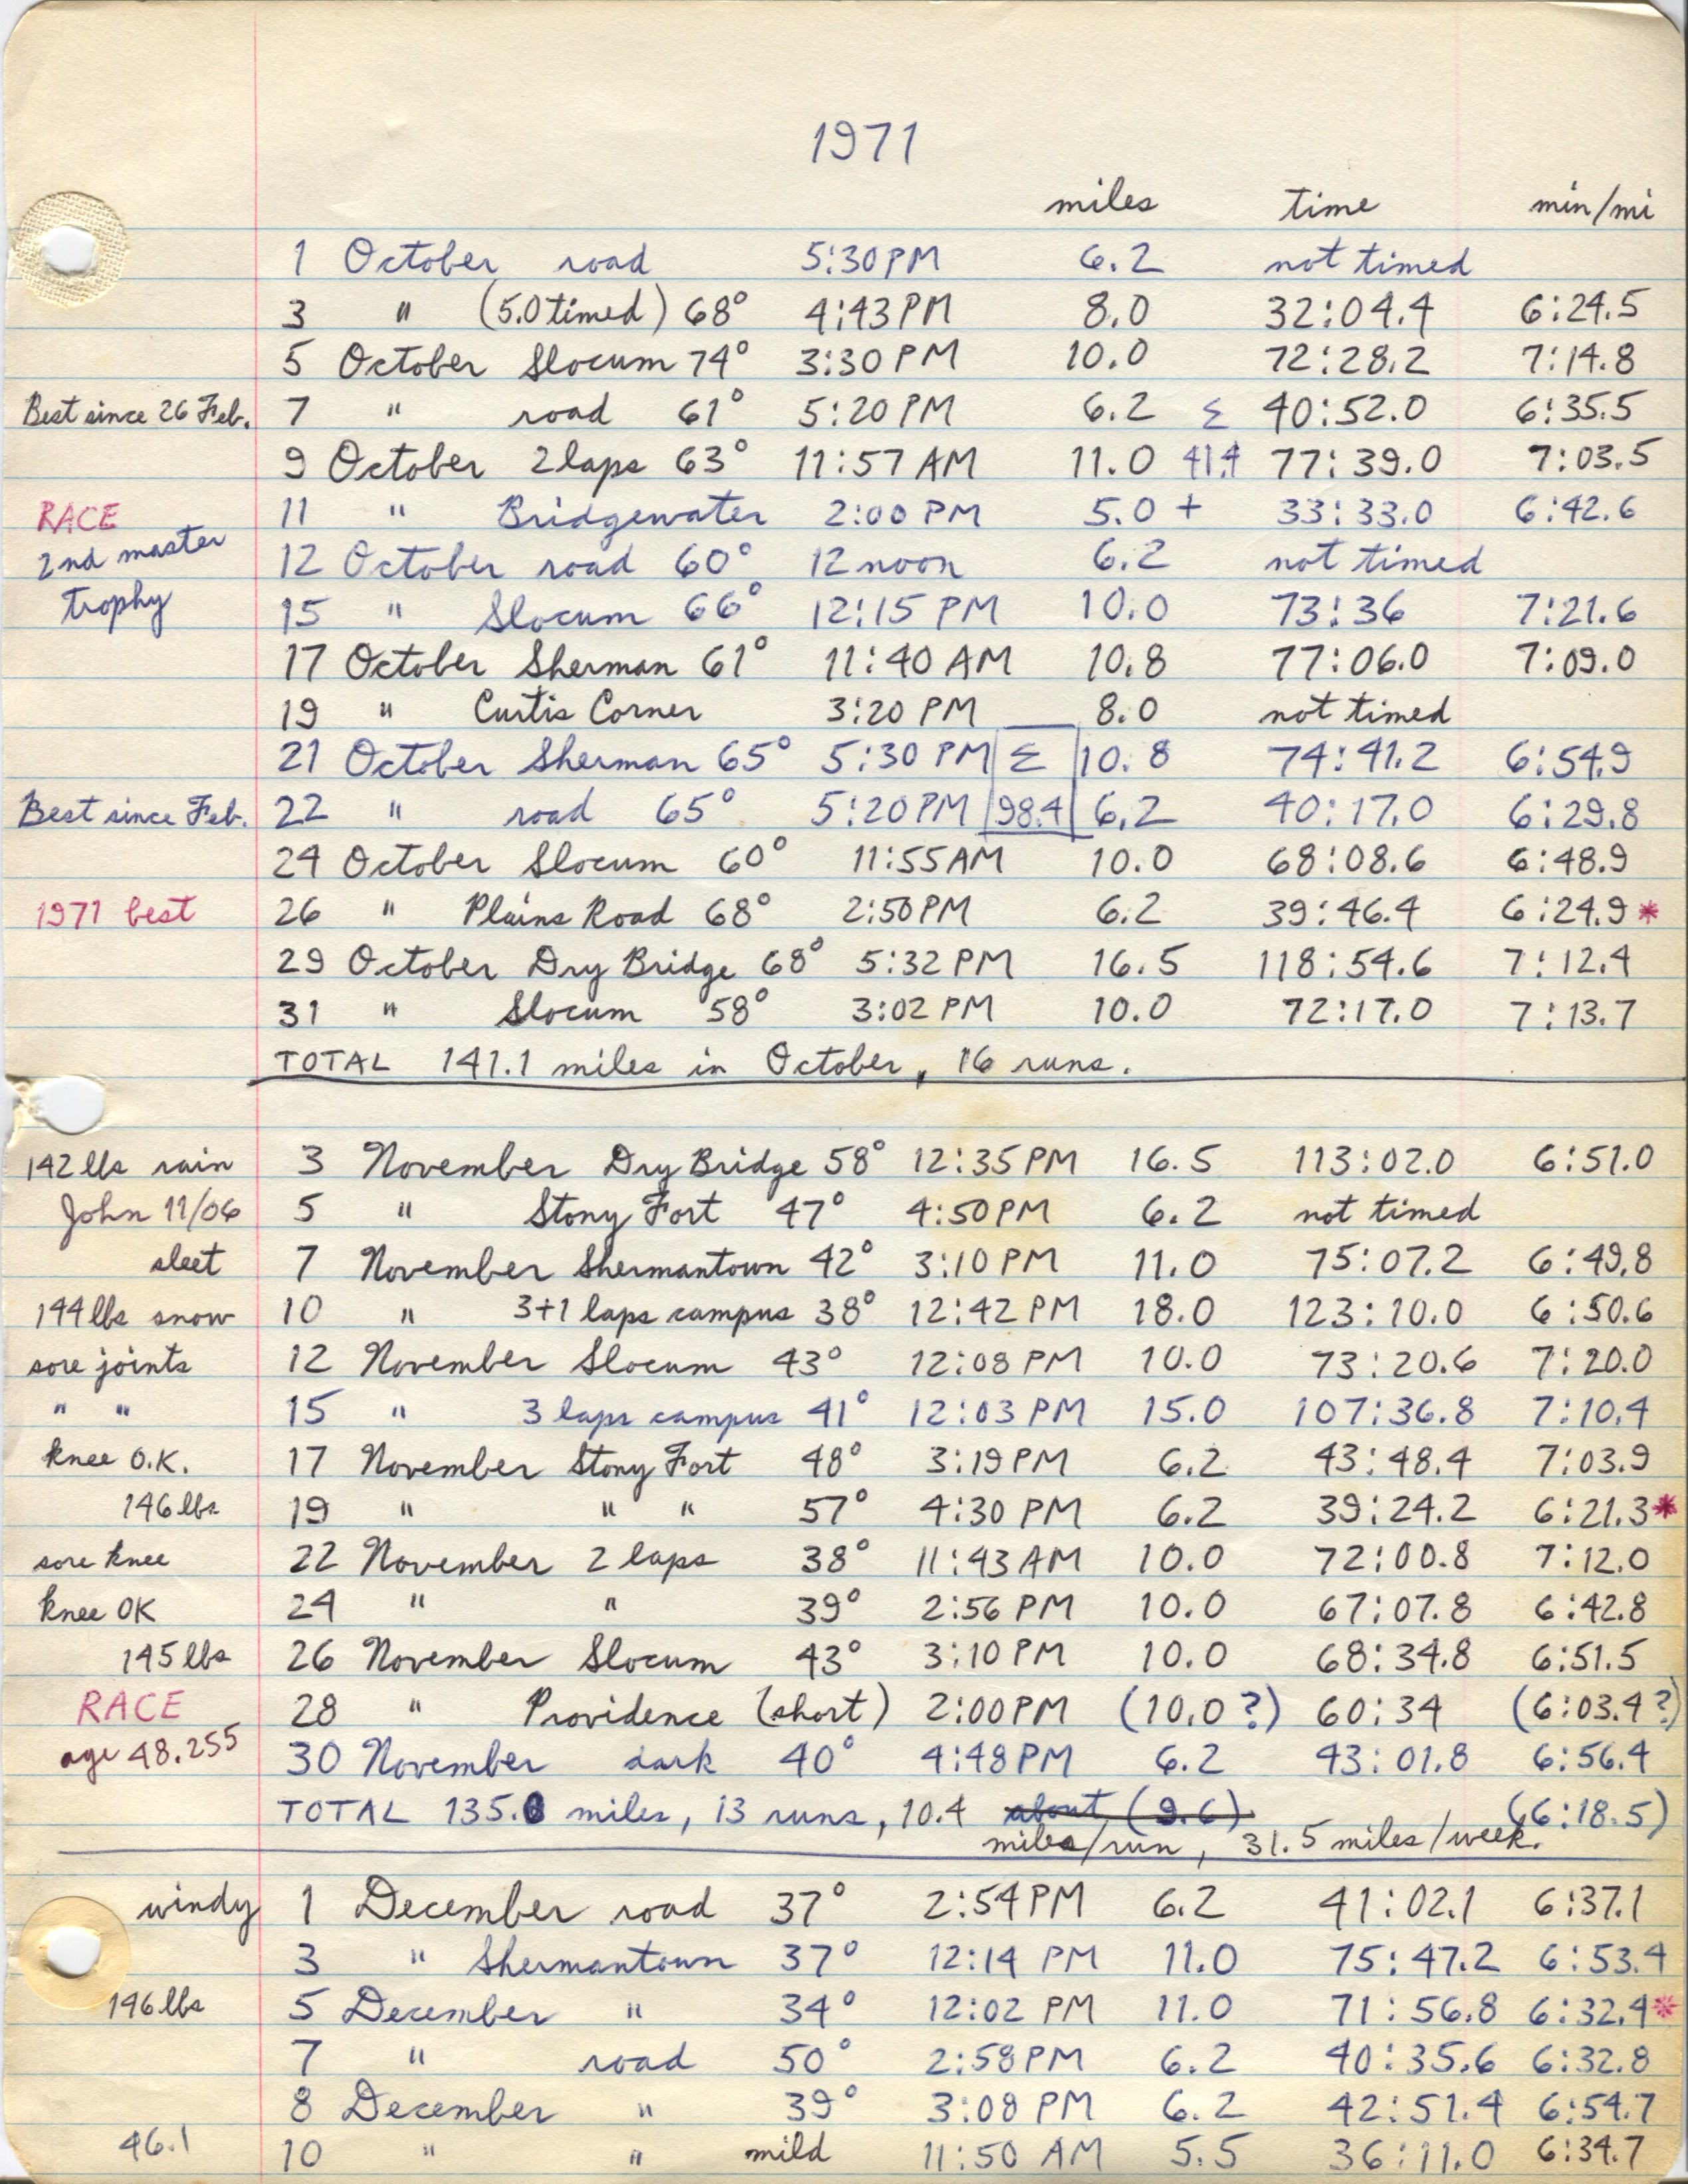 1971
miles time min/mi
1 October road 5:30 PM 6.2 not timed
3 " (5.0 timed) 68° 4:43 PM 8.0 32:04.4 6:24.5
5 October Slocum 74° 3:30 PM 10.0 72:28.2 7:14.8
Best since 26 Feb. 7 " road 61° 5:20 PM 6.2 Σ 40:52.0 6:35.5
9 October 2 laps 63° 11:57 AM 11.0 41.4 77:39.0 7:03.5
RACE 11 " Bridgewater 2:00 PM 5.0 + 33:33.0 6:42.6
2nd master 12 October road 60° 12 noon 6.2 not timed
trophy 15 " Slocum 66° 12:15 PM 10.0 73:36 7:21.6
17 October Sherman 61° 11:40 AM 10.8 77:06.0 7:09.0
19 " Curtis Corner 3:20 PM 8.0 not timed
21 October Sherman 65° 5:30 PM Σ 10.8 74:41.2 6:54.9
Best since Feb. 22 " road 65° 5:20 PM 98.4 6.2 40:17.0 6:29.8
24 October Slocum 60° 11:55 AM 10.0 68:08.6 6:48.9
1971 best 26 " Plains Road 68° 2:50 PM 6.2 39:46.4 6:24.9 *
29 October Dry Bridge 68° 5:32 PM 16.5 118:54.6 7:12.4
31 " Slocum 58° 3:02 PM 10.0 72:17.0 7:13.7
TOTAL 141.1 miles in October, 16 runs.
142 lbs rain 3 November Dry Bridge 58° 12:35 PM 16.5 113:02.0 6:51.0
John 11/06 5 " Stony Fort 47° 4:50 PM 6.2 not timed
sleet 7 November Shermantown 42° 3:10 PM 11.0 75:07.2 6:49.8
144 lbs snow 10 " 3+1 laps campus 38° 12:42 PM 18.0 123:10.0 6:50.6
sore joints 12 November Slocum 43° 12:08 PM 10.0 73:20.6 7:20.0
" " 15 " 3 laps campus 41° 12:03 PM 15.0 107:36.8 7:10.4
knee O.K. 17 November Stony Fort 48° 3:19 PM 6.2 43:48.4 7:03.9
146 lbs 19 " " " 57° 4:30 PM 6.2 39:24.2 6:21.3 *
sore knee 22 November 2 laps 38° 11:43 AM 10.0 72:00.8 7:12.0
knee OK 24 " " 39° 2:56 PM 10.0 67:07.8 6:42.8
145 lbs 26 November Slocum 43° 3:10 PM 10.0 68:34.8 6:51.5
RACE 28 " Providence (short) 2:00 PM (10.0?) 60:34 (6:03.4?)
age 48.255 30 November dark 40° 4:48 PM 6.2 43:01.8 6:56.4
TOTAL 135.0 miles, 13 runs, 10.4 about (9.6) (6:18.5)
miles/run, 31.5 miles/week.
windy 1 December road 37° 2:54 PM 6.2 41:02.1 6:37.1
3 " Shermantown 37° 12:14 PM 11.0 75:47.2 6:53.4
146 lbs 5 December " 34° 12:02 PM 11.0 71:56.8 6:32.4 *
7 " road 50° 2:58 PM 6.2 40:35.6 6:32.8
8 December " 39° 3:08 PM 6.2 42:51.4 6:54.7
46.1 10 " " mild 11:50 AM 5.5 36:11.0 6:34.7